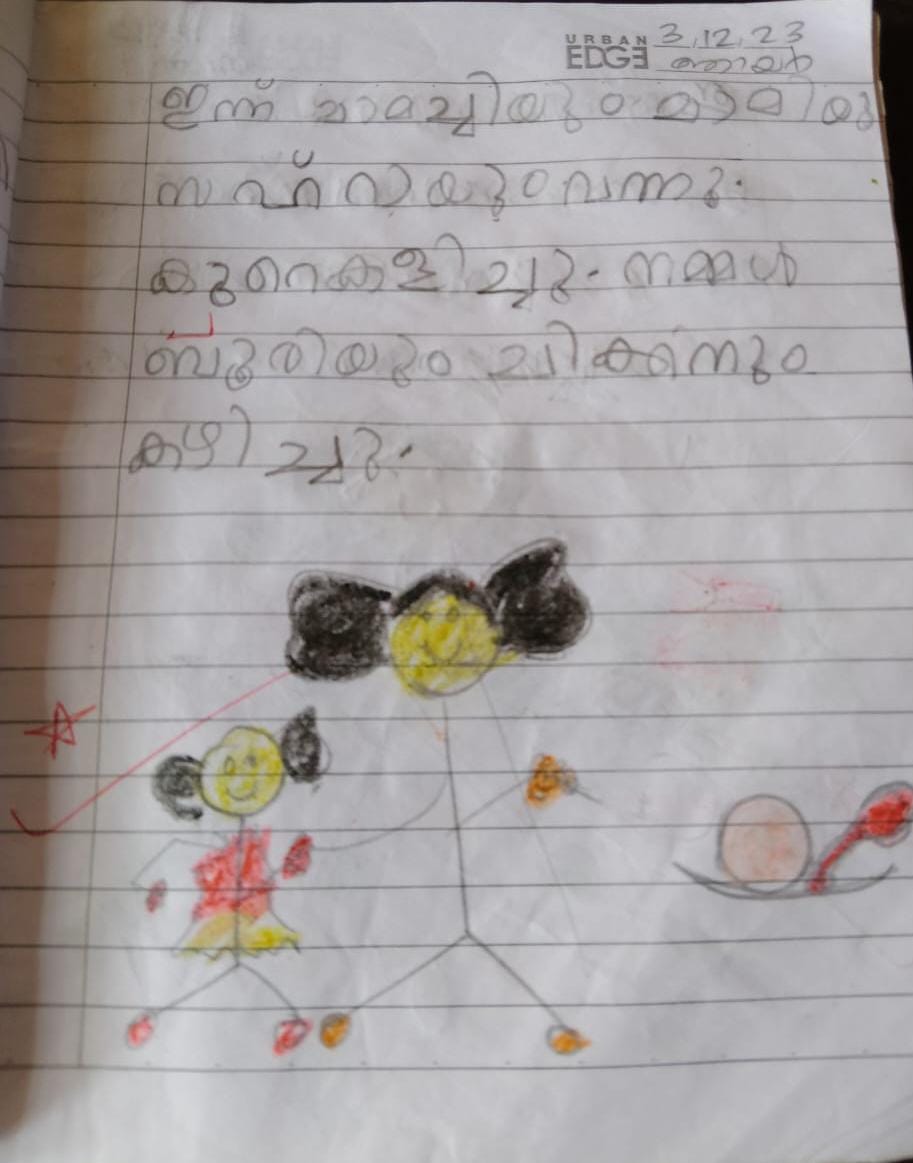 URBAN
EDGE
3.12.23
ഞായർ
ഇന്ന് ചാമച്ചിയും മാമിയു
സഹ്റയും വന്നു.
കുറെ കളിച്ചു. നമ്മൾ
ബൂരിയും ചിക്കനും
കഴിച്ചു.